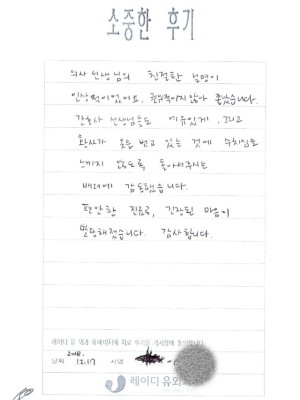 소중한 후기
의사 선생님의 친절한 설명이
인상적이었어요. 권위적이지 않아 좋았습니다.
간호사 선생님들도 여유있게, 그리고
환자가 옷을 벗고 있는 것에 수치심을
느끼지 않도록 돌아서주시는
배려에 감동했습니다.
편안한 진료로, 긴장된 마음이
말랑해졌습니다. 감사합니다.
레이디 유 외과 홈페이지에 치료 후기를 게시함에 동의합니다.
날짜 2018. 12. 17 서명
레이디 유외과